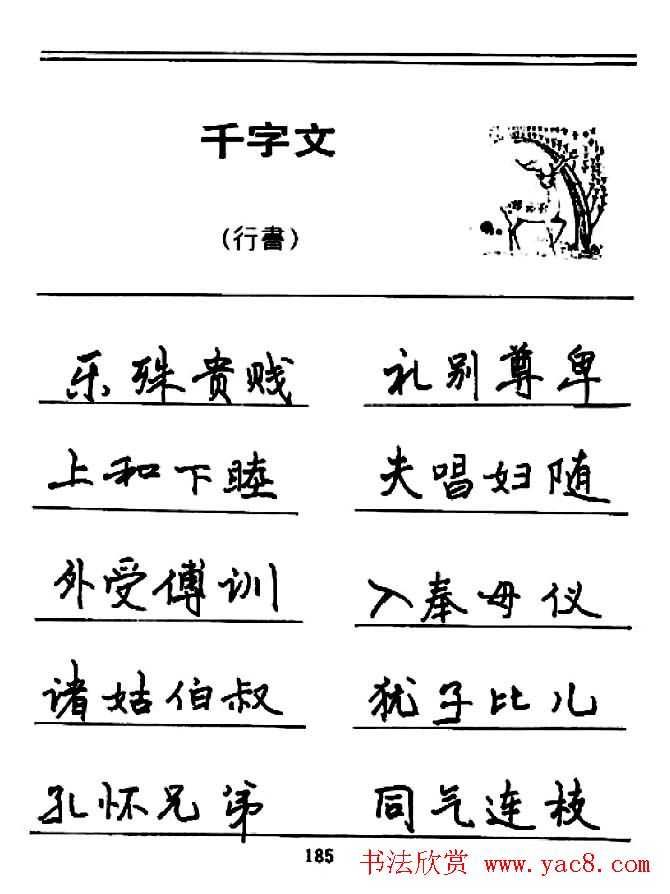 千字文
(行書)
乐殊贵贱 礼别尊卑
上和下睦 夫唱妇随
外受傅训 入奉母仪
诸姑伯叔 犹子比儿
孔怀兄弟 同气连枝
185
书法欣赏 www.yac8.com